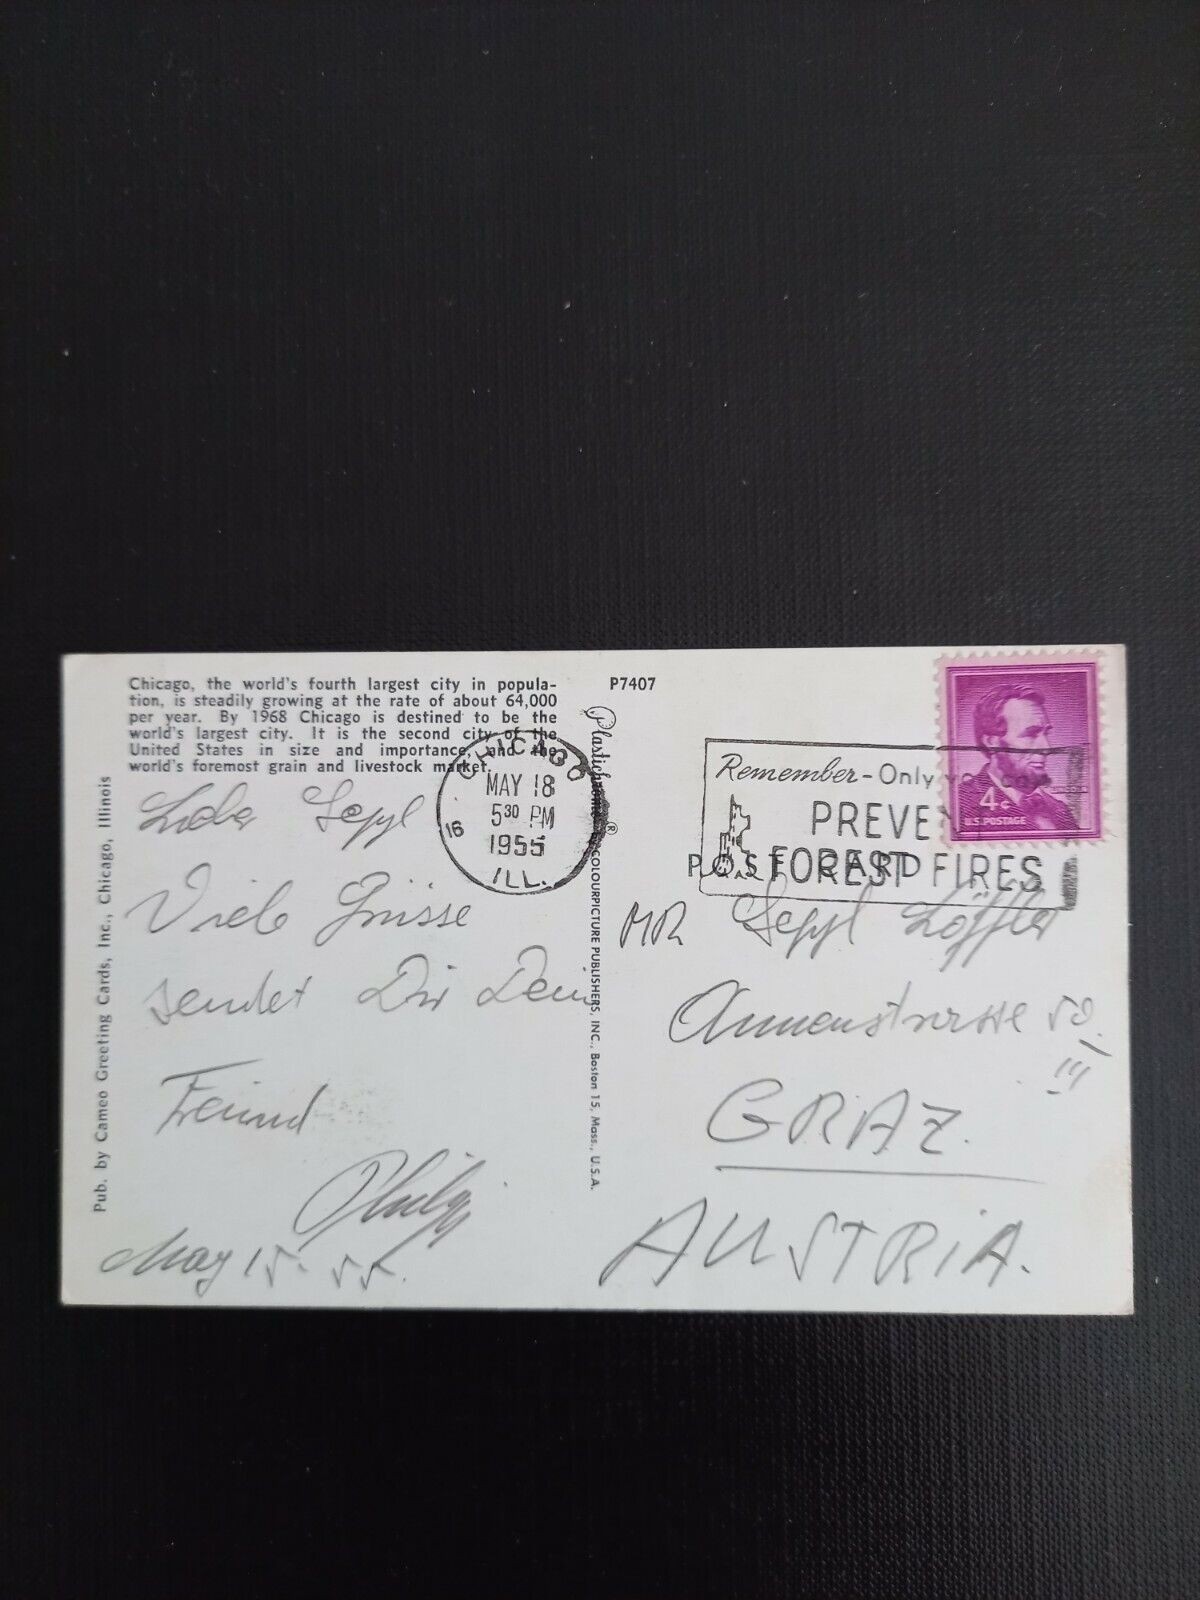 Chicago, the world's fourth largest city in popula-
tion, is steadily growing at the rate of about 64,000
per year. By 1968 Chicago is destined to be the
world's largest city. It is the second city of the
United States in size and importance, and the
world's foremost grain and livestock market.
Lieber Seppl
Viele Grüsse
sendet Dir Dein
Freund
Philipp
May 15. 55.
Pub. by Cameo Greeting Cards, Inc., Chicago, Illinois
CHICAGO
MAY 18
5 30 PM
1955
ILL.
16
Plastichrome®
COLOURPICTURE PUBLISHERS, INC., Boston 15, Mass., U.S.A.
P7407
4¢
U.S. POSTAGE
Remember-Only you can
PREVENT
FOREST FIRES
POST CARD
MR Seppl Löffler
Annenstrasse 50
III
GRAZ.
AUSTRIA.